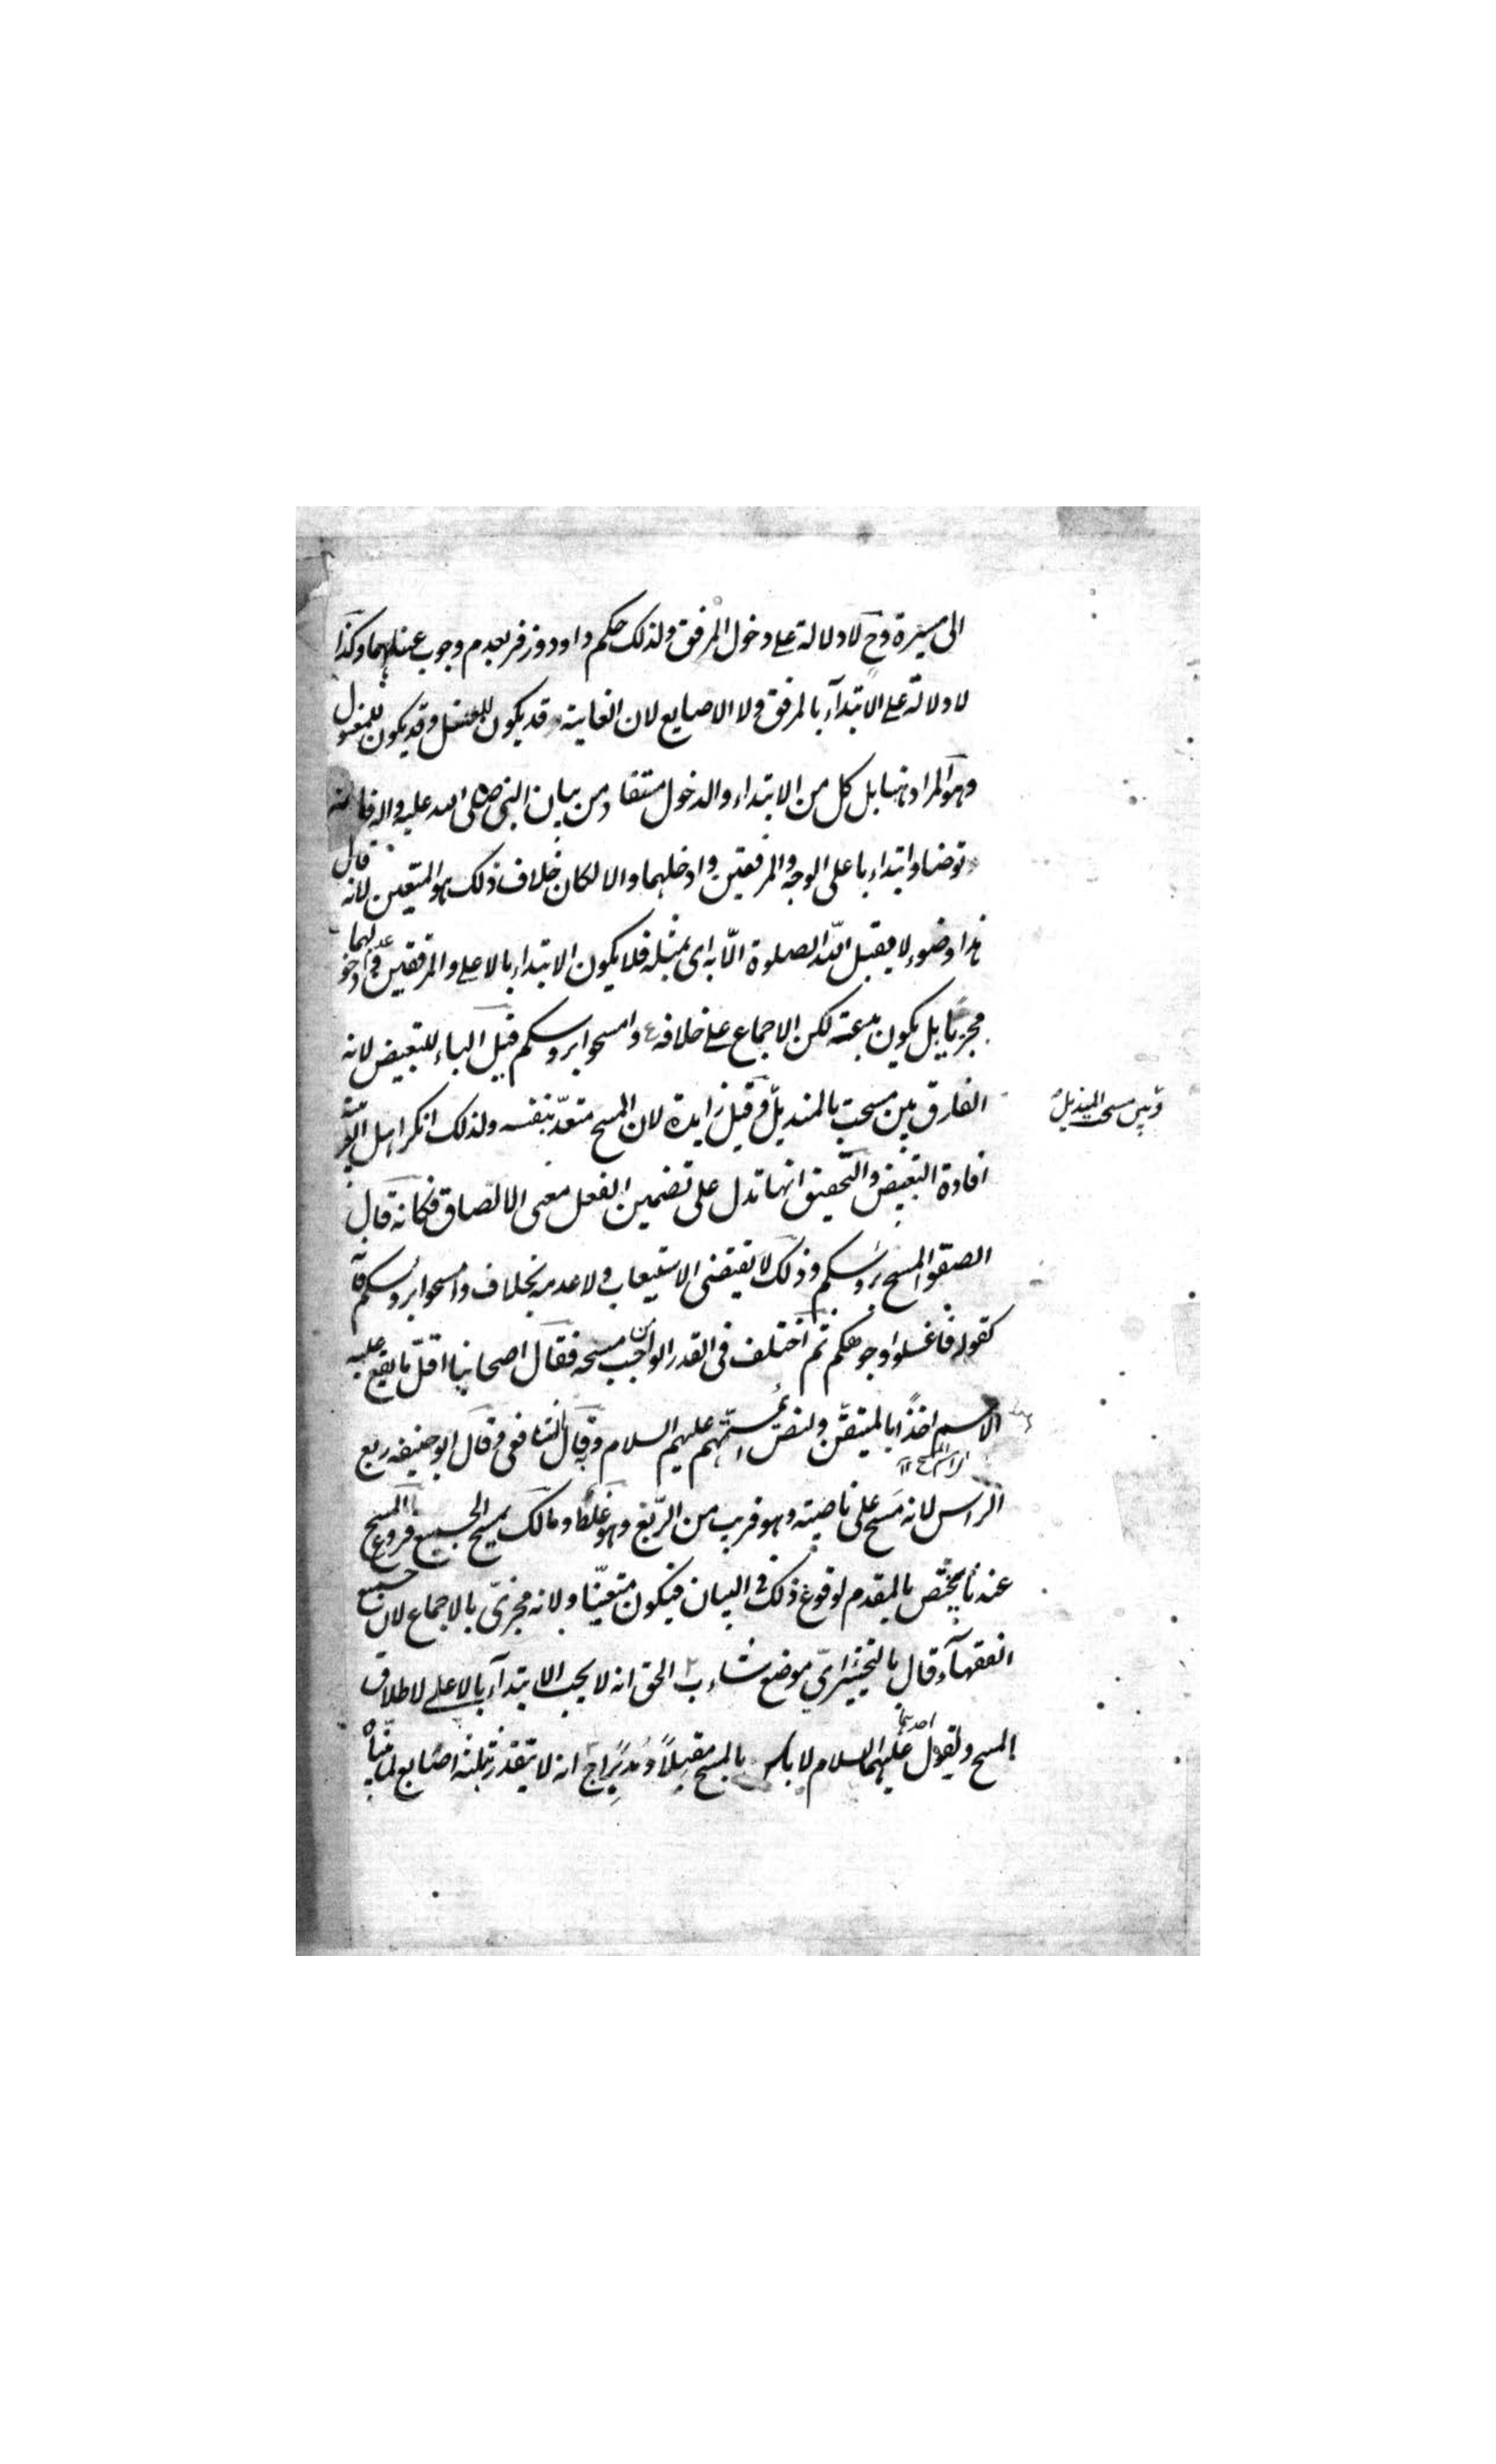 الى ميسرة وح لا دلالة على دخول المرفق ولذلك حكم داود وزفر بعدم وجوب غسلهما وكذا
لا دلالة على الابتدآء بالمرفق ولا الاصابع لان الغاية قد يكون للغسل وقد يكون للمغسول
وهو المراد هنا بل كل من الابتداء والدخول مستفاد من بيان النبى صلى الله عليه واله فانه
توضا وابتداء باعلى الوجه والمرفقين وادخلهما والا لكان خلاف ذلك هو المتعين لانه قال
هذا وضوء لا يقبل الله الصلوة الا به اى بمثله فلا يكون الابتداء بالاعلى والمرفقين وعدم دخولهما
مجزيا بل يكون بدعة لكن الاجماع على خلافه وامسحوا بروسكم قيل الباء للتبعيض لانه
الفارق بين مسحت بالمنديل وقيل زايدة لان المسح متعد بنفسه ولذلك انكر اهل العربية
وبين مسحت المنديل
افادة التبعيض والتحقيق انها تدل على تضمين الفعل معنى الالصاق فكانه قال
الصقوا المسح بروسكم وذلك لا يقتضى الاستيعاب ولا عدمه بخلاف وامسحوا بروسكم فانه
كقوله فاغسلوا وجوهكم ثم اختلف فى القدر الواجب مسحه فقال اصحابنا اقل ما يقع عليه
الاسم اخذا بالمتيقن ولنص ائمتهم عليهم السلام وبه قال الشافعى وقال ابو حنيفه ربع
الراس لانه مسح على ناصيته وهو قريب من الربع وهو غلط ومالك يمسح الجميع فروع ا المسح
عندنا يختص بالمقدم لوقوع ذلك فى البيان فيكون متعينا ولانه مجزئ بالاجماع لان جميع
الفقهآء قال بالتخيير اى موضع شاء ب الحق انه لا يجب الابتدآء بالاعلى لاطلاق
المسح ولقول احدهما عليهما السلام لا باس بالمسح مقبلا ومدبرا ج انه لا يتقدر بثلثة اصابع لما بيناه